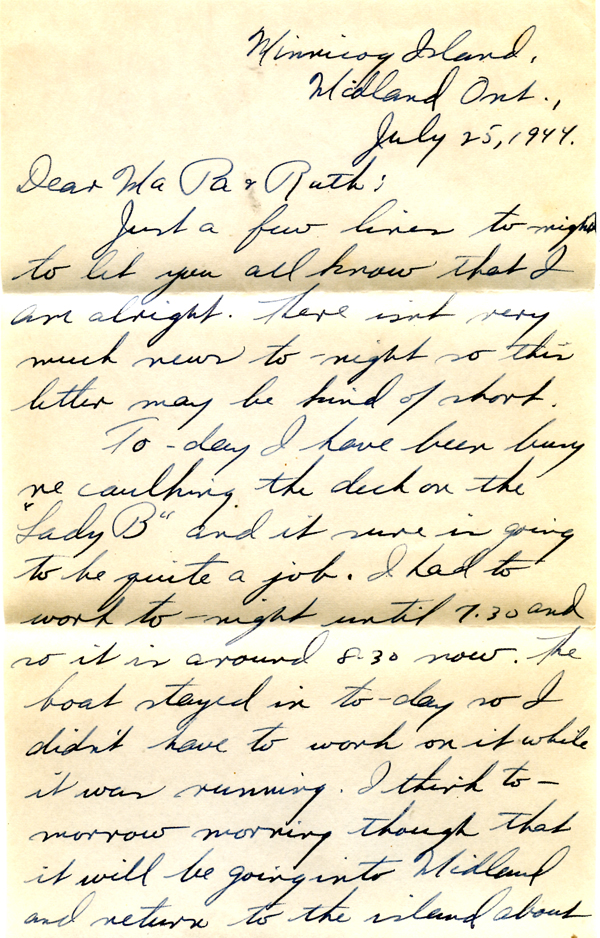 Minnicog Island,
Midland Ont.,
July 25, 1944.
Dear Ma Pa & Ruth:
Just a few lines to-night
to let you all know that I
am alright. There isnt very
much news to-night so this
letter may be kind of short.
To-day I have been busy
re caulking the deck on the
"Lady B" and it sure is going
to be quite a job. I had to
work to-night until 7.30 and
so it is around 8.30 now. The
boat stayed in to-day so I
didn't have to work on it while
it was running. I think to-
morrow morning though that
it will be going into Midland
and return to the island about